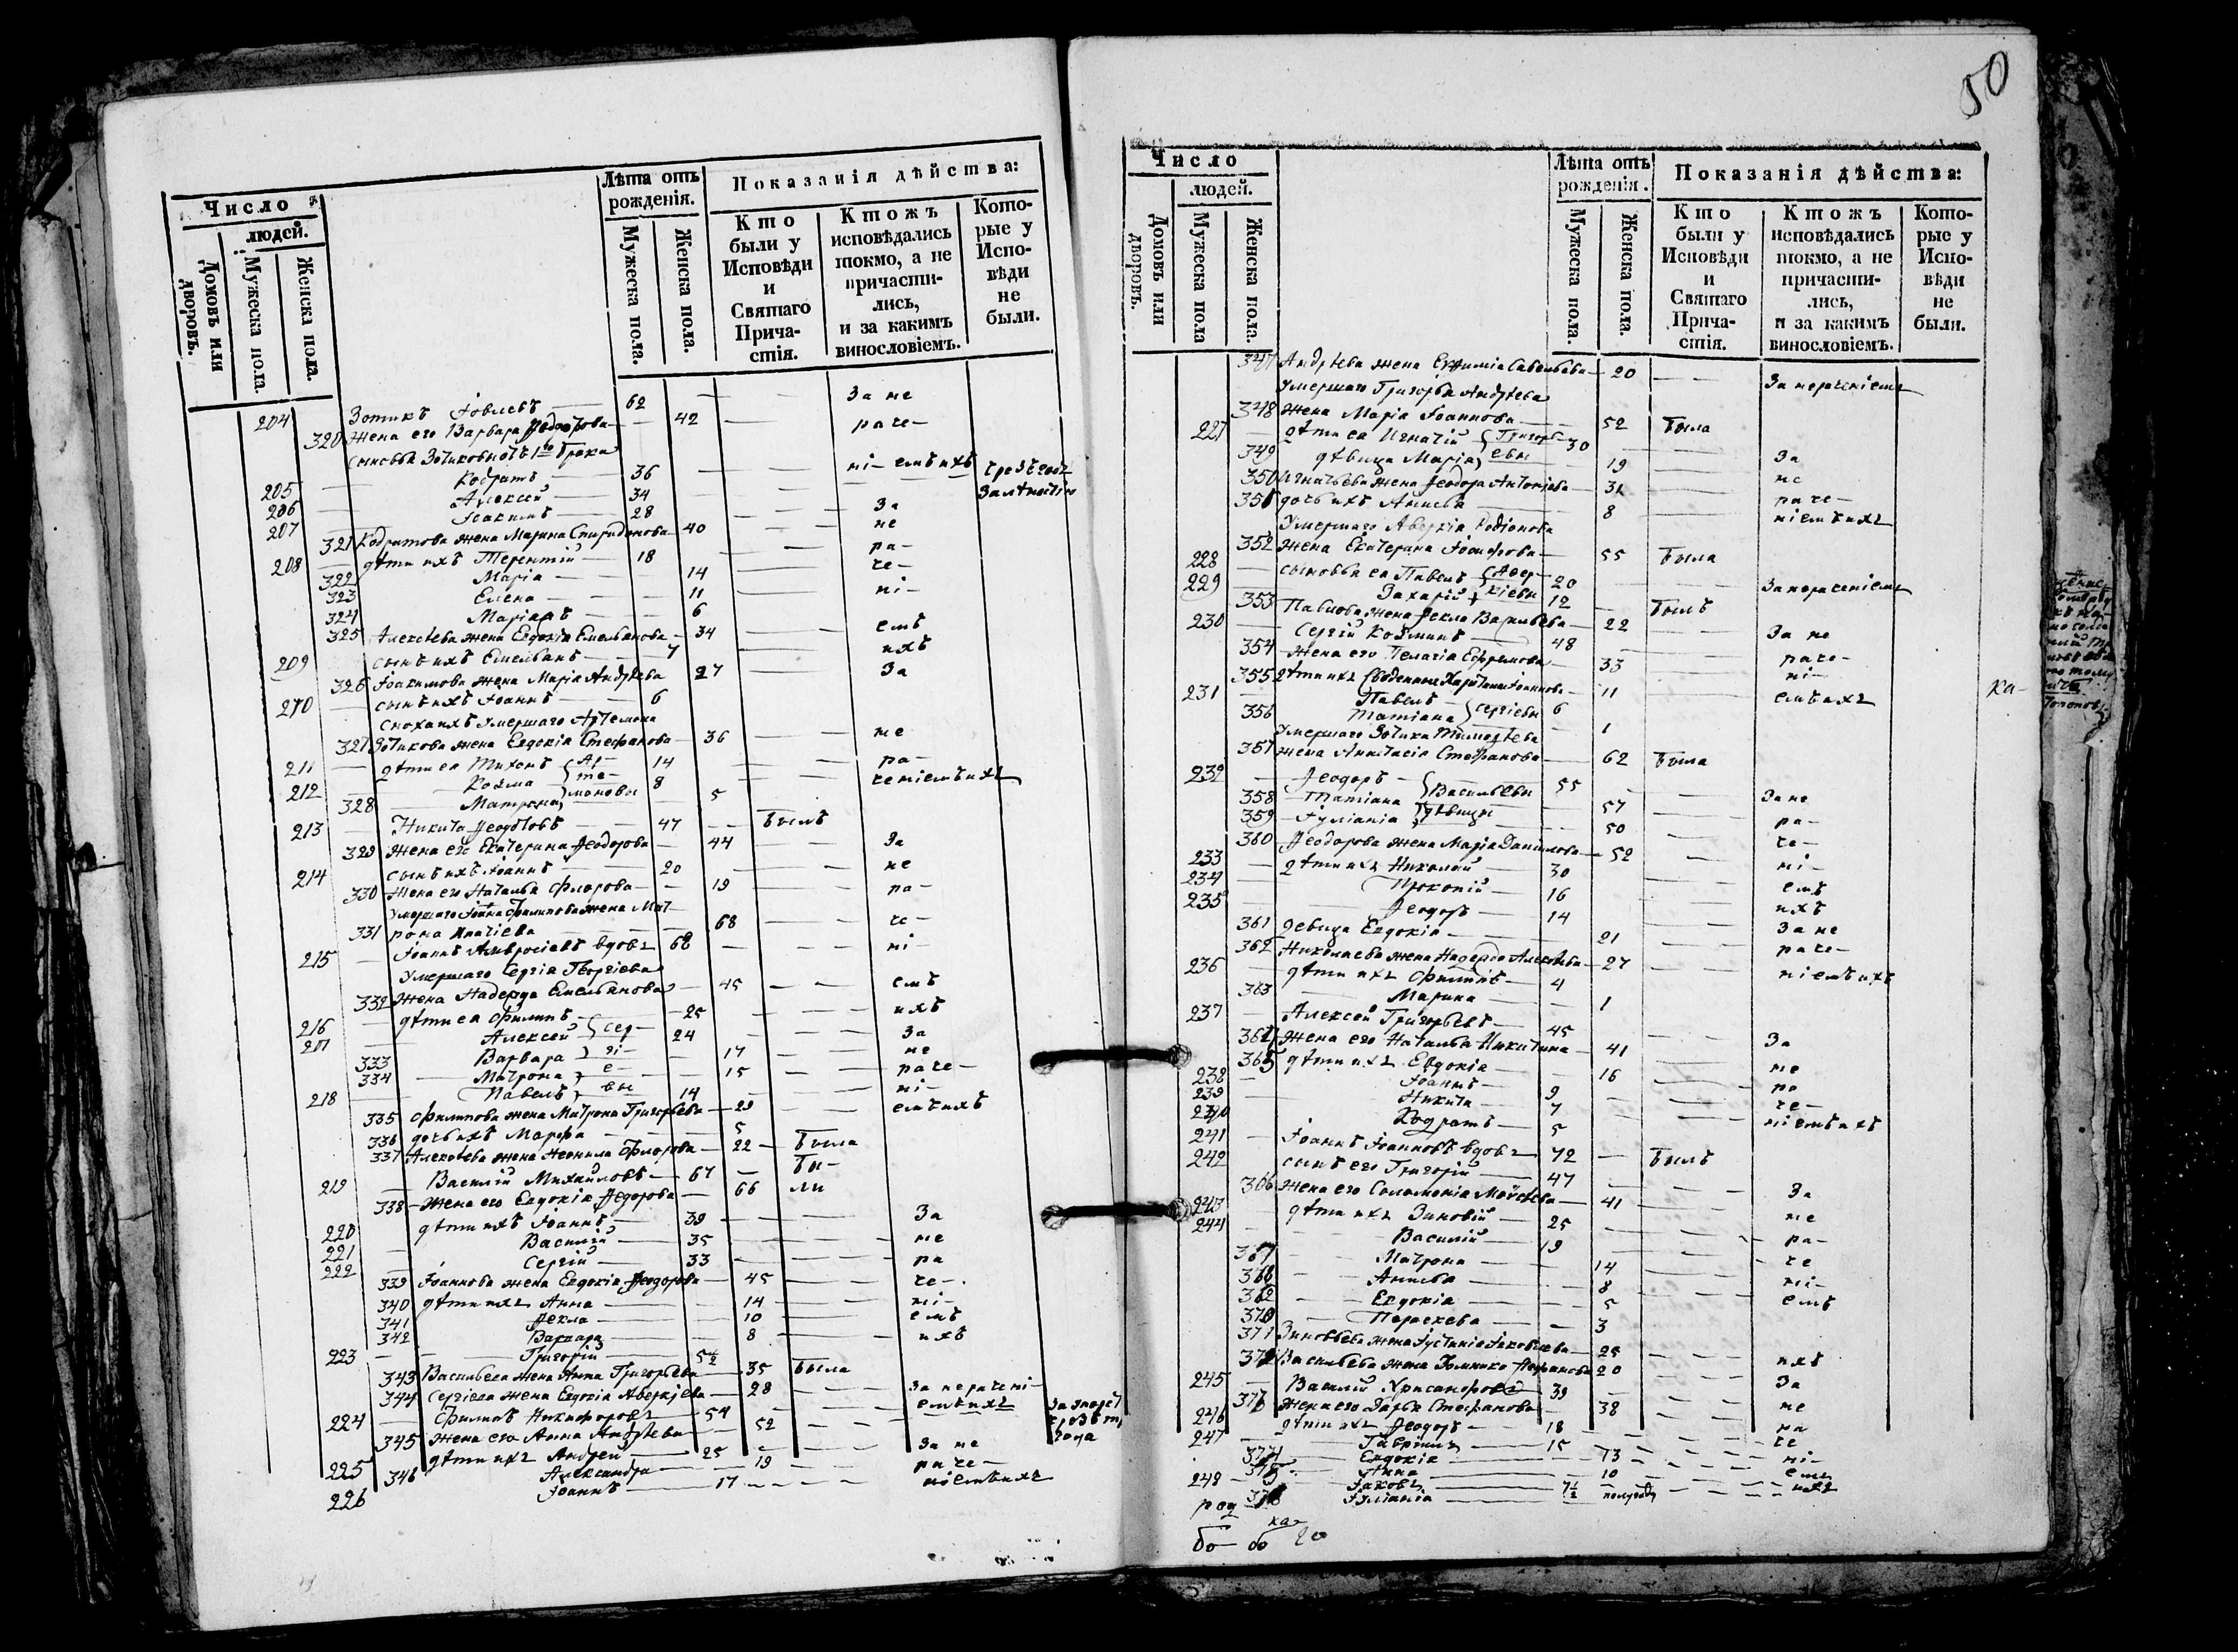 Число
людей.
Домовъ или дворовъ.
Мужеска пола.
Женска пола.
Лѣта отъ рожденія.
Мужеска пола.
Женска пола.
Показанія дѣйства:
Кто были у Исповѣди и Святаго Причастія.
Ктожъ исповѣдались токмо, а не причастились, и за какимъ винословіемъ.
Которые у Исповѣди не были.
204 Зотикъ Іовлевъ 62 За не
320 Жена его Варвара Ѳедорова 42 раче-
205 Кодратъ 36 ні- емъ ихъ
206 Алексей 34
207 Іоакимъ 28 За
321 Кодратова жена Марина Спиридонова 40 не
208 дѣти ихъ Терентій 18 ра-
322 Марія 14 че-
323 Елена 11 ні-
324 Марія 6
325 Алексѣева жена Евдокія Емельянова 34 емъ
209 сынъ ихъ Емельянъ 7 ихъ
326 Іоакимова жена Марія Андрѣева 27 За
210 сынъ ихъ Іоаннъ 6
сноха ихъ умершаго Артемона
327 Зотикова жена Евдокія Стефанова 36 не
211 дѣти ея Тихонъ 14 ра-
212 Козма 8 ченіемъ ихъ
328 Матрона 5
213 Никита Ѳедотовъ 47 былъ
329 жена его Екатерина Ѳеодорова 44 За
214 сынъ ихъ Іоаннъ 20 не
330 Жена его Наталья Флорова 19 ра-
Умершаго Іоанна Филипова жена Мат-
331 рона Игнатіева 68 че-
215 Іоаннъ Амвросіевъ вдовъ 68 ні-
Умершаго Сергія Георгіева
332 Жена Надежда Емельянова 45 емъ
216 дѣти ея Филипъ 25 ихъ
217 Алексей Сер- 24 За
333 Варвара гі- 17 не
334 Матрона е- 15 раче-
218 Павелъ вы 14 ні-
335 Филипова жена Матрона Григорьева 29 емъ ихъ
336 дочь ихъ Марфа 5
337 Алексѣева жена Неонила Флорова 22 была
219 Василій Михайловъ 67 бы-
338 Жена его Евдокія Ѳедорова 66 ли
220 дѣти ихъ Іоаннъ 39 За
221 Василій 35 не
222 Сергій 33 ра
339 Іоаннова жена Евдокія Ѳеодорова 45 че-
340 дѣти ихъ Анна 14 ні-
341 Ѳекла 10 емъ
342 Варвара 8 ихъ
223 Григорій
343 Васильева жена Анна Григорьева 35 была
344 Сергіева жена Евдокія Аверкіева 28 За нерачені-
224 Филипъ Никифоровъ 54 емъ ихъ
345 жена его Анна Андрѣева 52
225 дѣти ихъ Андрей 25 За не
346 Александра 19 раче-
226 Іоаннъ 17 ніемъ ихъ
50
Число
людей.
Домовъ или дворовъ.
Мужеска пола
Женска пола.
Лѣта отъ рожденія.
Мужеска пола.
Женска пола.
Показанія дѣйства:
Кто были у Исповѣди и Святаго Причастія.
Ктожъ исповѣдались токмо, а не причастились, и за какимъ винословіемъ.
Которые у Исповѣди не были.
347 Андрѣева жена Савельева 20 За нераченіемъ
Умершаго Григорья Андрѣева
348 жена Марія Іоаннова 52 была
227 дѣти ея Игнатій Григорь- 30
349 дѣвица Марія евы 19 За
350 Игнатьева жена Ѳеодора Антоніева 31 не
351 дочь ихъ Анисья 8 раче-
Умершаго Аверкія Родіонова ніемъ ихъ
352 жена Екатерина 55 была
228 сыновья ея Павелъ Авер- 20
229 Захарій кіевы 12 За нераченіемъ
353 Павлова жена Ѳекла Васильева 22 былъ
230 Сергій Козминъ 48 За не
354 Жена его Пелагія Ефремова 33 раче-
355 Іоаннова 11 ні-
231 Павелъ Сергіевы 6 емъ ихъ
356 Татіана 1
Умершаго Зотика Тимоѳѣева
357 жена Анастасія Стефанова 62 была
232 Ѳеодоръ Васильевы 55
358 Татіана дѣвицы 57 За не
359 Іуліанія 50 ра-
360 Ѳеодорова жена Марія Данилова 52 че-
233 дѣти ихъ Николай 30 ні-
234 Прокопій 16 емъ
235 Ѳеодоръ 14 ихъ
361 девица Евдокія 21 За не
362 Николаева жена Надежда Алексѣева 27 раче-
236 дѣти ихъ Филипъ 4 ніемъ ихъ
363 Марина 1
237 Алексей Григорьевъ 45
364 Жена его Наталья Никитина 41 За
365 дѣти ихъ Евдокія 16 не
238 Іоаннъ 9 ра
239 Никита 7 че-
240 Кодратъ 5 ніемъ ихъ
241 Іоаннъ Іоанновъ вдовъ 72 былъ
242 сынъ его Григорій 47
366 Жена его Соломонія Моисѣева 41 За
243 дѣти ихъ Зиновій 25 не
244 Василій 19 ра-
367 Матрона 14 че
368 Анисья 8 ні-
369 Евдокія 5 емъ
370 Параскева 3
371 Зиновьева жена Іустинія Іаковлева 25
372 Васильева жена 20 ихъ
245 Василій Хрисанфовъ 39 За
373 Жена его Дарья Стефанова 38 не
246 дѣти ихъ Ѳеодоръ 18 ра
247 Гавріилъ 15 че
374 Евдокія 13 ні-
375 Анна 10 емъ
248 Іаковъ ихъ
376 Іуліанія полугода
ка-